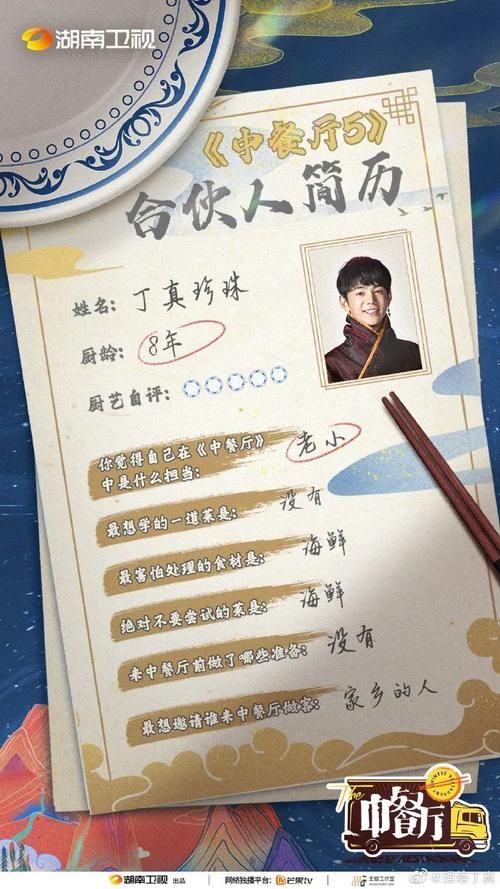 湖南卫视
《中餐厅5》
合伙人简历
姓名: 丁真珍珠
厨龄: 8年
厨艺自评:
你觉得自己在《中餐厅》
中是什么担当: 老小
最想学的一道菜是: 没有
最害怕处理的食材是: 海鲜
绝对不要尝试的菜是: 海鲜
来中餐厅前做了哪些准备: 没有
最想邀请谁来中餐厅做客: 家乡的人
The
中餐厅
CHINESE RESTAURANT
湖南卫视 出品
网络独播平台: 芒果tv
王恬工作室